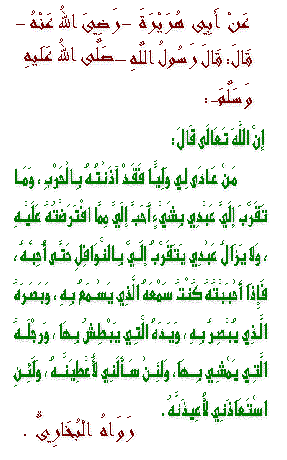 عَنْ أَبِي هُرَيْرَةَ -رَضِيَ اللهُ عَنْهُ-
قَالَ: قَالَ رَسُولُ اللهِ -صَلَّى اللهُ عَلَيهِ
وَسَلَّمَ-:
إِنَّ اللهَ تَعَالَى قَالَ:
مَنْ عَادَى لِي وَلِيًّا فَقَدْ آذَنْتُهُ بِالْحَرْبِ، وَمَا
تَقَرَّبَ إِلَيَّ عَبْدِي بِشَيْءٍ أَحَبَّ إِلَيَّ مِمَّا افْتَرَضْتُهُ عَلَيْهِ
، وَلَا يَزَالُ عَبْدِي يَتَقَرَّبُ إِلَيَّ بِالنَّوَافِلِ حَتَّى أُحِبَّهُ،
فَإِذَا أَحْبَبْتُهُ كُنْتُ سَمْعَهُ الَّذِي يَسْمَعُ بِهِ، وَبَصَرَهُ
الَّذِي يُبْصِرُ بِهِ، وَيَدَهُ الَّتِي يَبْطِشُ بِهَا، وَرِجْلَهُ
الَّتِي يَمْشِي بِهَا، وَلَئِنْ سَأَلَنِي لَأُعْطِيَنَّهُ، وَلَئِنِ
اسْتَعَاذَنِي لَأُعِيذَنَّهُ.
رَوَاهُ الْبُخَارِيُّ .